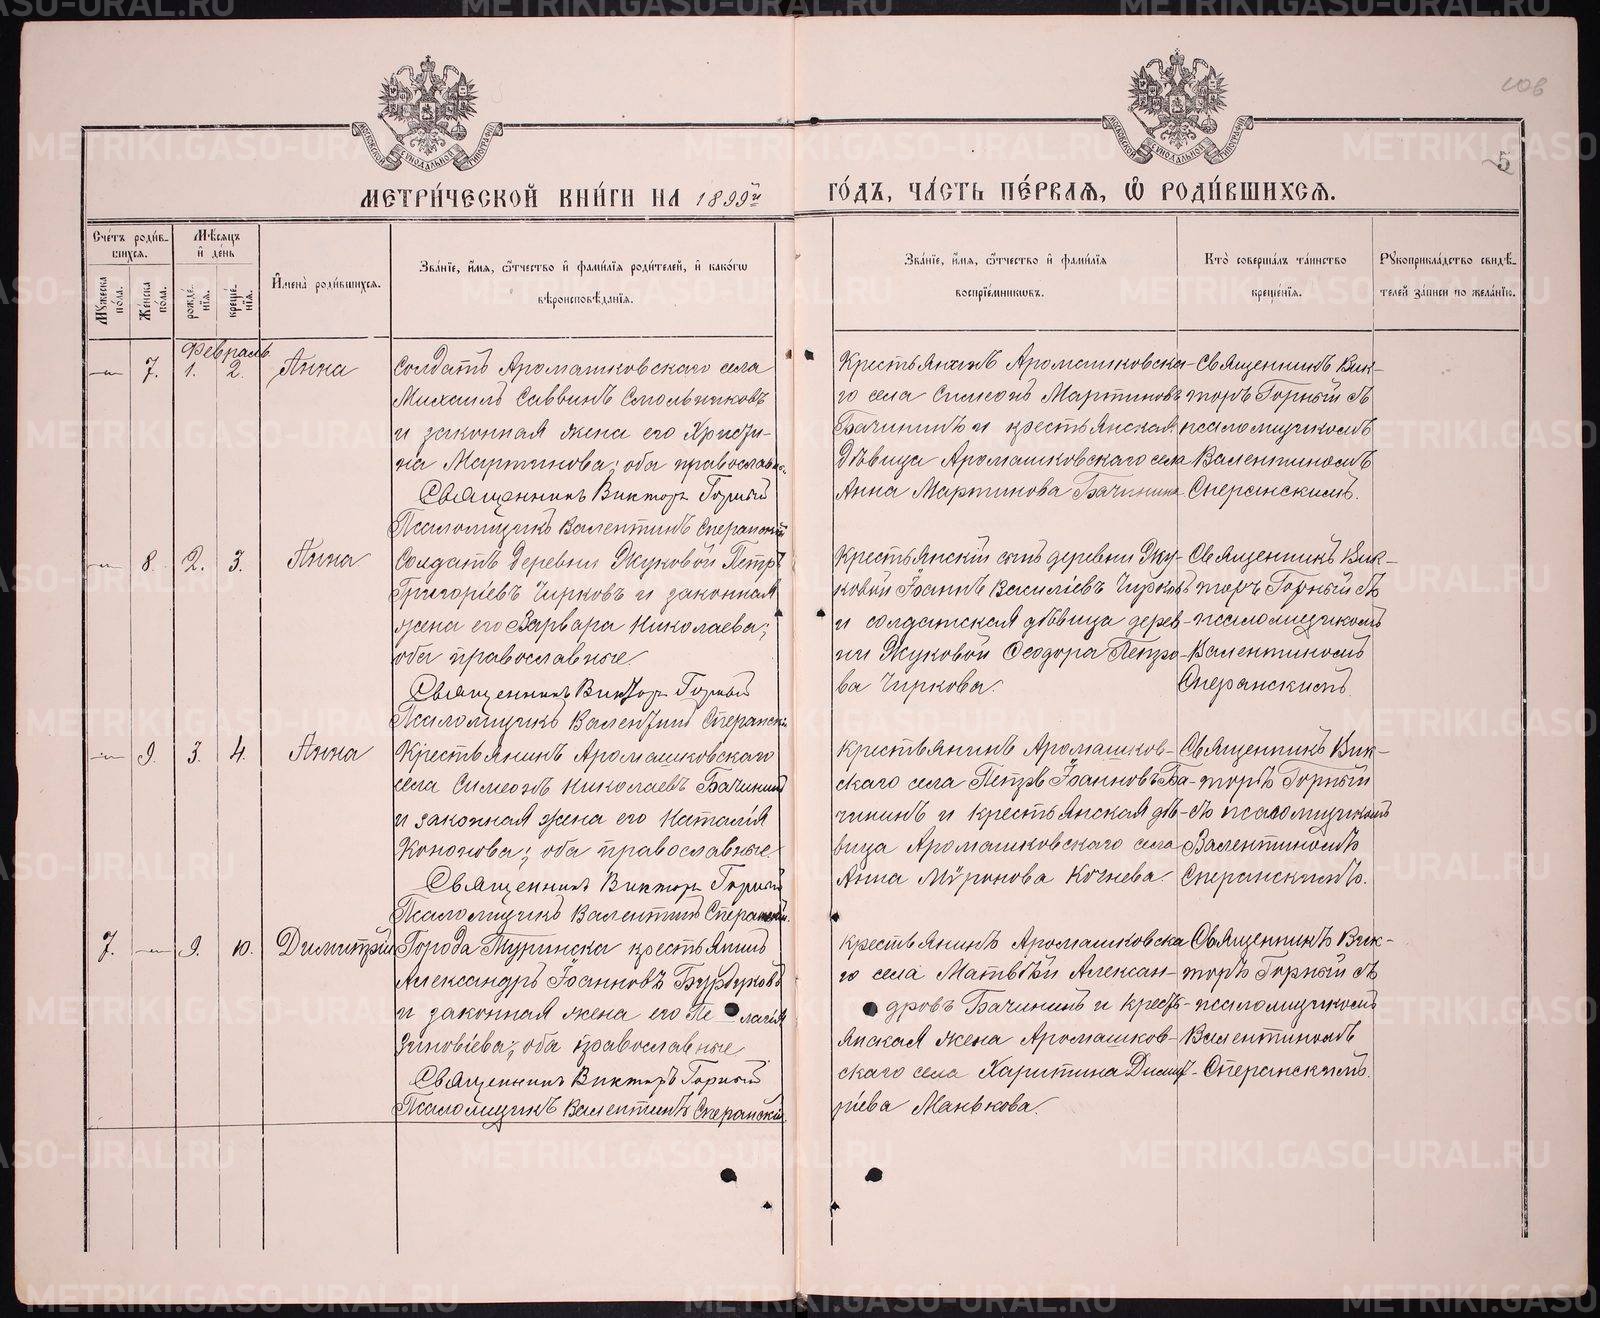 МЕТРИ́ЧЕСКОЙ КНИ́ГИ НА 1899й
ГО́ДЪ, ЧА́СТЬ ПЕ́РВАЯ, Ѿ РОДИ́ВШИХСЯ.
5
Сче́тъ роди́в-
шихся.
Мꙋ́жеска по́ла.
Же́нска по́ла.
Мѣ́сяцъ
и҆ де́нь
рожде́-нїя.
креще́-нїя.
И҆мена̀ роди́вшихся.
Зва́нїе, и҆́мя, ѻ҆́тчество и҆ фами́лїя роди́телей, и҆ како́гѡ
вѣроисповѣ́данїя.
Зва́нїе, и҆́мя, ѻ҆́тчество и҆ фами́лїя
воспрїе́мниковъ.
Кто̀ соверша́лъ та́инство
креще́нїя.
Рꙋкоприкла́дство свидѣ́-
телей за́писи по жела́нїю.
Февраль
— 7. 1. 2. Анна
Солдатъ Аромашковскаго села
Михаилъ Саввинъ Смольниковъ
и законная жена его Христи-
на Мартинова; оба православн.
Священникъ Викторъ Горный
Псаломщикъ Валентинъ Сперанскій
Крестьянинъ Аромашковска-
го села Симеонъ Мартиновъ
Бачининъ и крестьянская
дѣвица Аромашковскаго села
Анна Мартинова Бачинина
Священникъ Вик-
торъ Горный съ
псаломщикомъ
Валентиномъ
Сперанскимъ.
— 8. 2. 3. Анна
Солдатъ деревни Жуковой Петръ
Григоріевъ Чирковъ и законная
жена его Варвара Николаева;
оба православные.
Священникъ Викторъ Горный
Псаломщикъ Валентинъ Сперанскій
Крестьянскій сынъ деревни Жу-
ковой Іоаннъ Василіевъ Чирковъ
и солдатская дѣвица дерев-
ни Жуковой Ѳеодора Петро-
ва Чиркова.
Священникъ Вик-
торъ Горный съ
псаломщикомъ
Валентиномъ
Сперанскимъ.
— 9. 3. 4. Анна
Крестьянинъ Аромашковскаго
села Симеонъ Николаевъ Бачининъ
и законная жена его Наталія
Кононова; оба православные.
Священникъ Викторъ Горный
Псаломщикъ Валентинъ Сперанскій
Крестьянинъ Аромашков-
скаго села Петръ Іоанновъ Ба-
чининъ и крестьянская дѣ-
вица Аромашковскаго села
Анна Мѵронова Кочнева.
Священникъ Вик-
торъ Горный
съ псаломщикомъ
Валентиномъ
Сперанскимъ.
7. — 9. 10. Димитрій
Города Туринска крестьянинъ
Александръ Іоанновъ Бурдуковъ
и законная жена его Пелагія
Зиновіева; оба православные
Священникъ Викторъ Горный
Псаломщикъ Валентинъ Сперанскій
Крестьянинъ Аромашковска
го села Матвѣй Алексан-
дровъ Бачининъ и кресть-
янская жена Аромашков-
скаго села Харитина Димит-
ріева Манькова.
Священникъ Вик-
торъ Горный съ
псаломщикомъ
Валентиномъ
Сперанскимъ.
METRIKI.GASO-URAL.RU